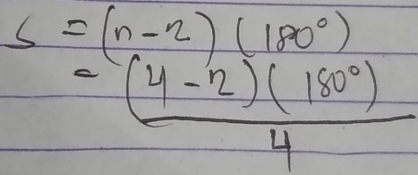 S = (n-2) (180°)
= (4-2) (180°)
4